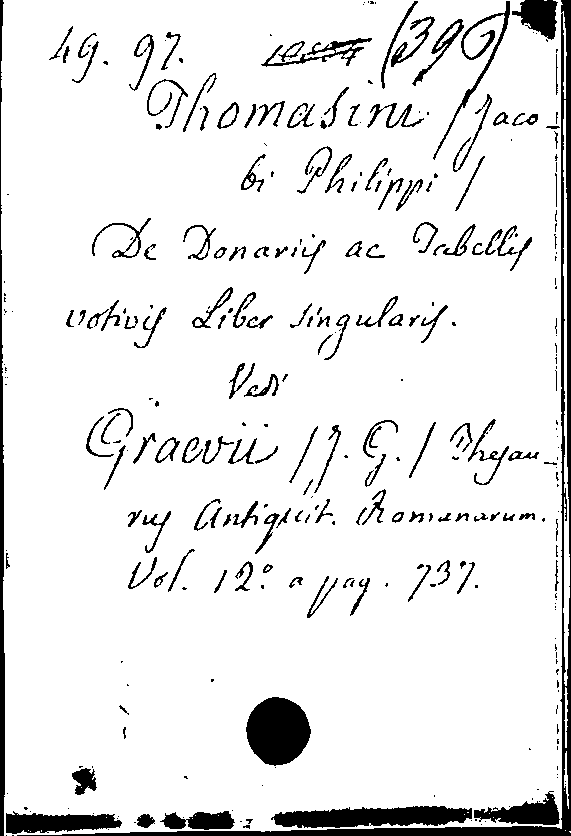 49. 97. (396)
Thomasini / Jaco-
bi Philippi /
De Donariis ac Tabellis
votivis Liber singularis.
Vedi
Graevii / J. G. / Thesau-
rus Antiquit. Romanarum.
Vol. 12.º a pag. 737.